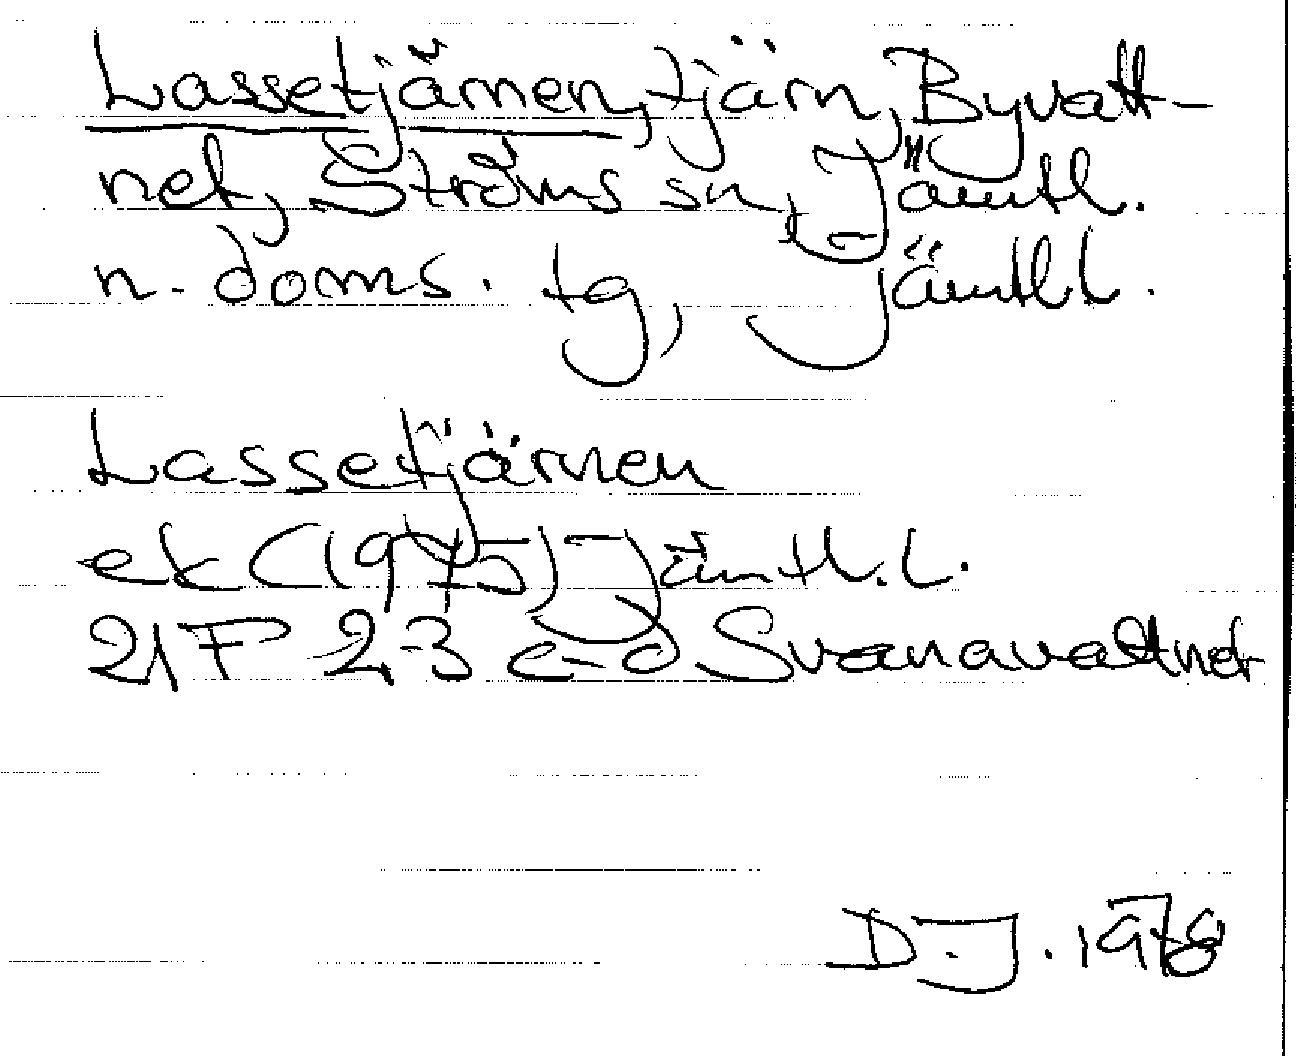 Lassetjärnen, tjärn, Byvatt-
net, Ströms sn, Jämtl.
n. doms. tg, Jämtl l.
Lassetjärnen
ek (1975) Jämtl. l.
21F 2-3 c-d Svanavattnet
D.J. 1978